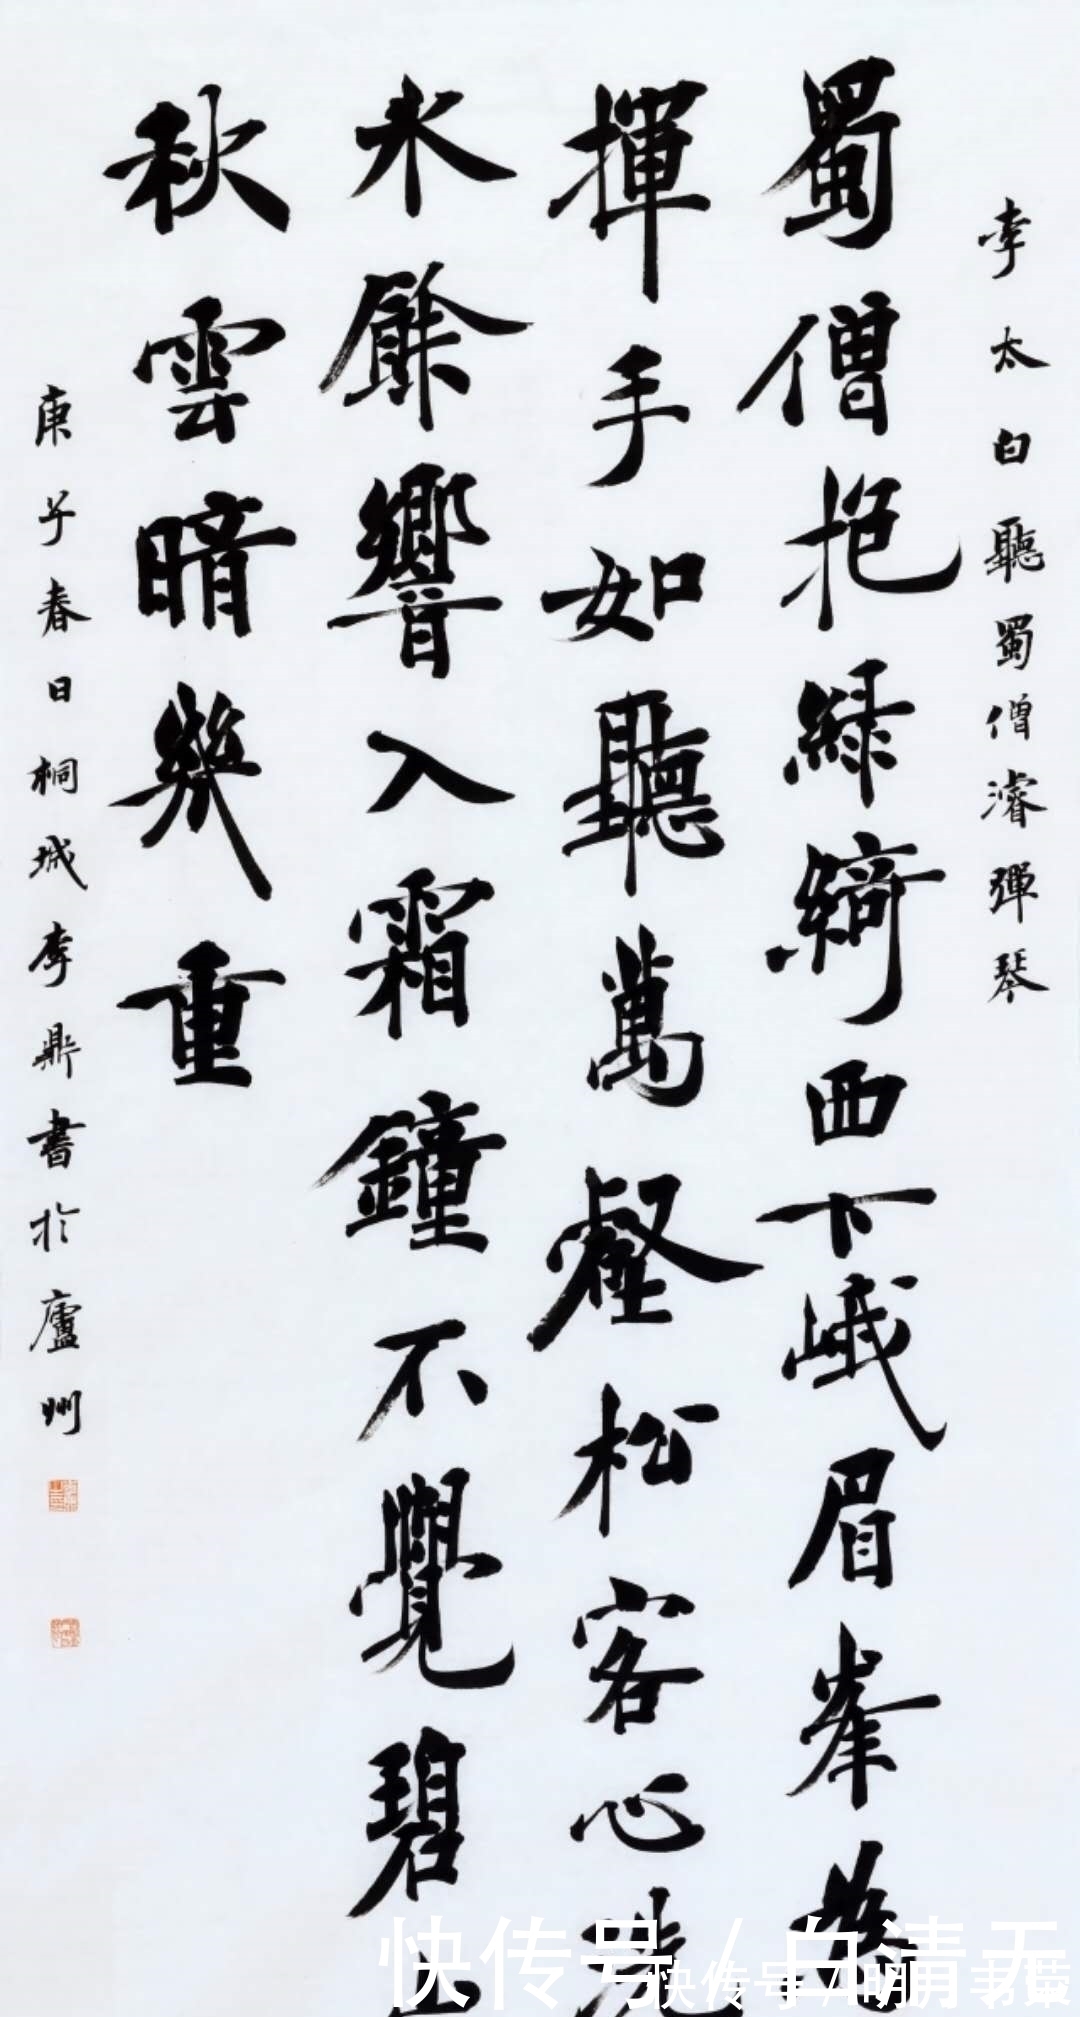 李太白聽蜀僧濬彈琴
蜀僧抱綠綺西下峨眉峯為
揮手如聽萬壑松客心
水餘響入霜鐘不覺碧山
秋雲暗幾重
庚子春日桐城李鼎書於廬州
快传号 / 白清无
快传号 / 明月书